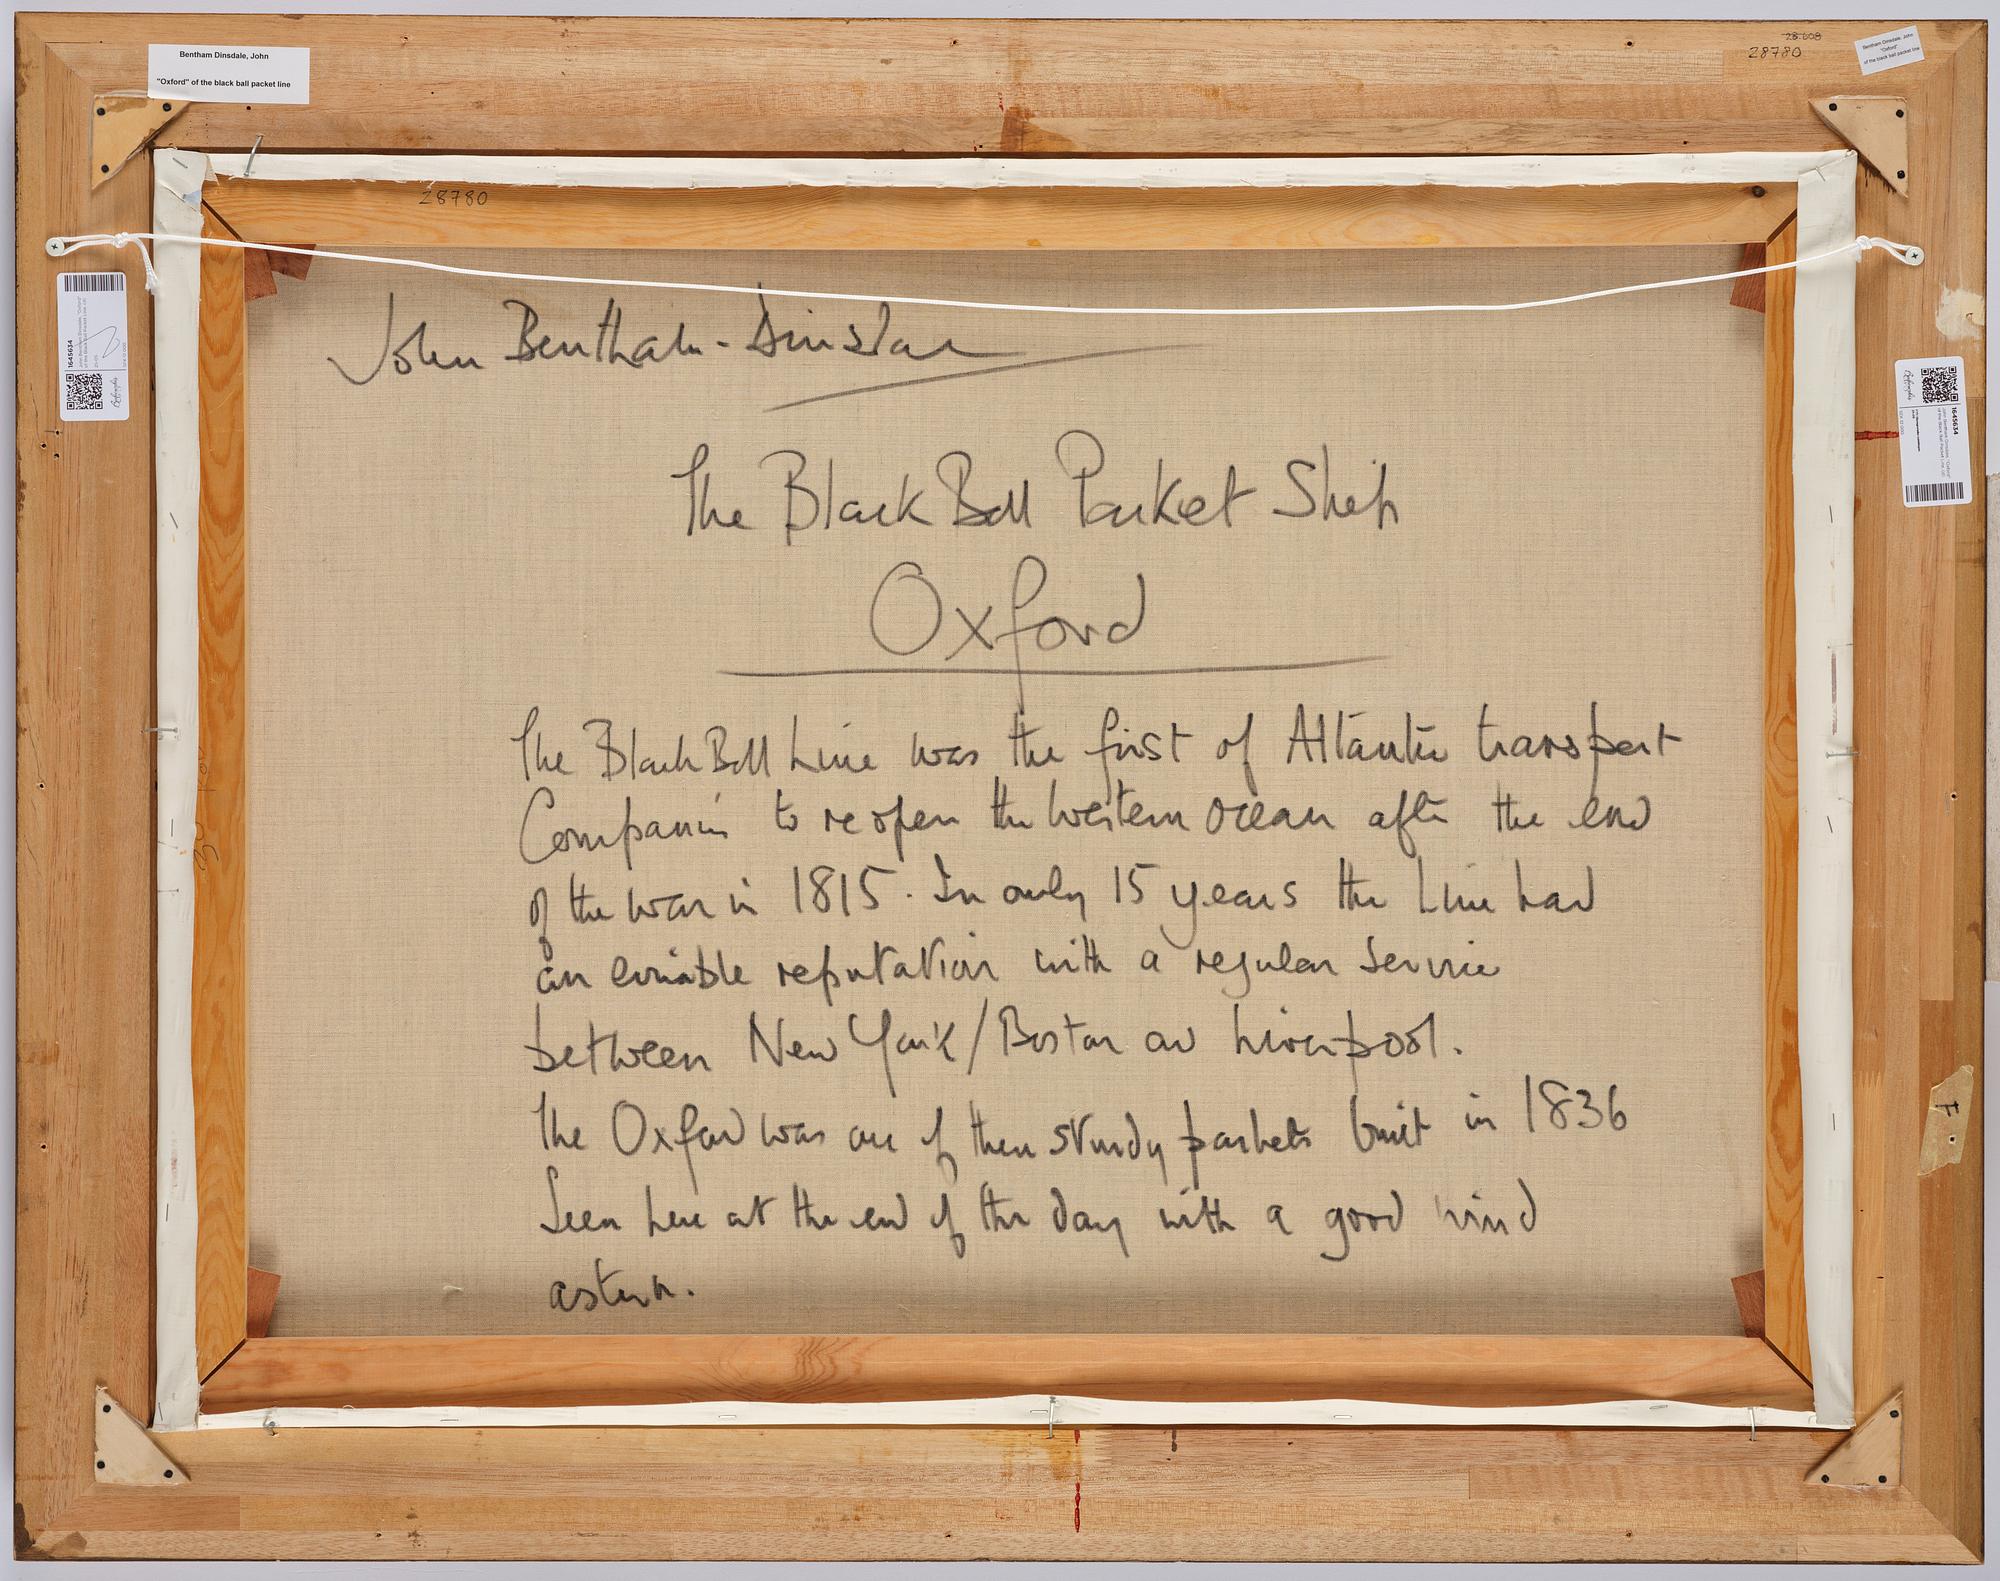 Bentham Dinsdale, John
"Oxford" of the black ball packet line
28.608
28780
Bentham Dinsdale, John
"Oxford"
of the black ball packet line
28780
1645634
1645634
John Bentham-Dinsdale
The Black Ball Packet Ship
Oxford
The Black Ball Line was the first of Atlantic transport
Companies to reopen the Western Ocean after the end
of the war in 1815. In only 15 years the Line had
an enviable reputation with a regular service
between New York/Boston and Liverpool.
The Oxford was one of these sturdy packets built in 1836
Seen here at the end of the day with a good wind
astern.
F